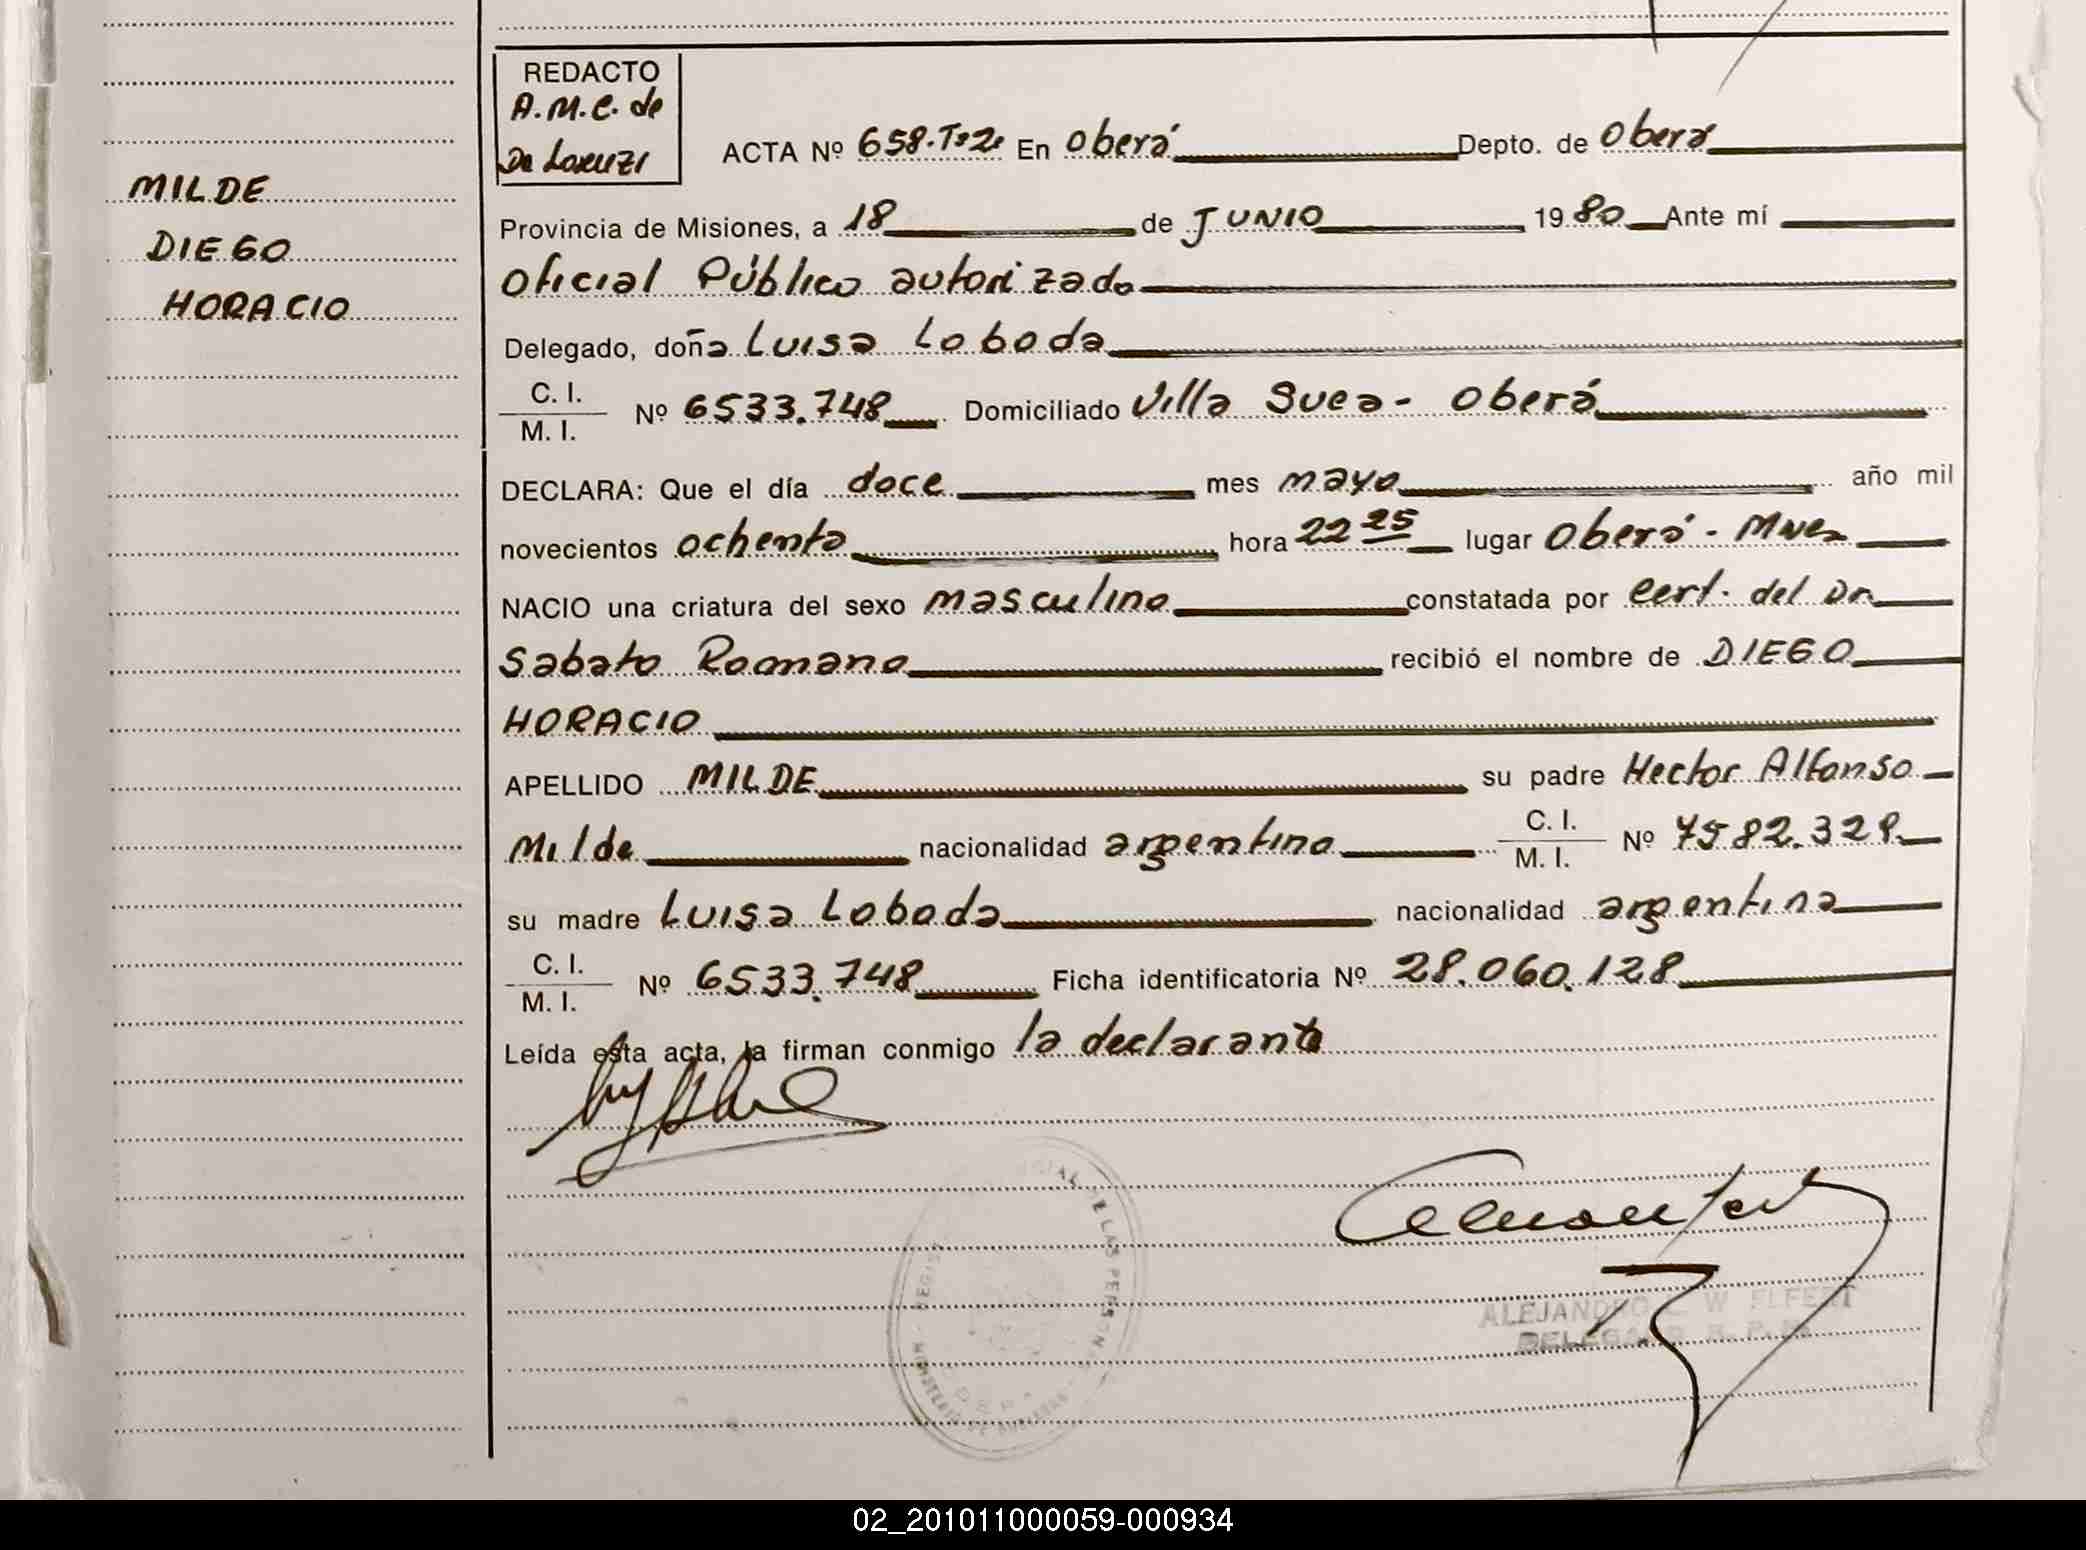 REDACTO
A.M.C. de
De Lorenzi
ACTA Nº 658.Tº2º En Oberá Depto. de Oberá
MILDE
DIEGO
HORACIO
Provincia de Misiones, a 18 de JUNIO 1980 Ante mí
Oficial Público autorizado
Delegado, doña Luisa Loboda
C. I.
M. I. Nº 6533.748 Domiciliado Villa Svea - Oberá
DECLARA: Que el día doce mes mayo año mil
novecientos ochenta hora 22 25 lugar Oberá - Mnes
NACIO una criatura del sexo masculino constatada por cert. del Dr
Sabato Romano recibió el nombre de DIEGO
HORACIO
APELLIDO MILDE su padre Hector Alfonso
Milde nacionalidad argentino C. I.
M. I. Nº 7582.328
su madre Luisa Loboda nacionalidad argentina
C. I.
M. I. Nº 6533.748 Ficha identificatoria Nº 28.060.128
Leída esta acta, la firman conmigo la declarante
DE LAS PERSONAS
ALEJANDRO W ELFERT
02_201011000059-000934